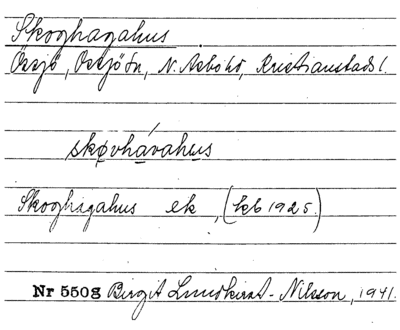 Skoghagahus
Össjö, Össjö sn, N. Åsbo hd, Kristianstads l.
skøvhávahus
Skoghagahus ek, (kb 1925.)
Nr 5508 Birgit Lundkvist-Nilsson, 1941.